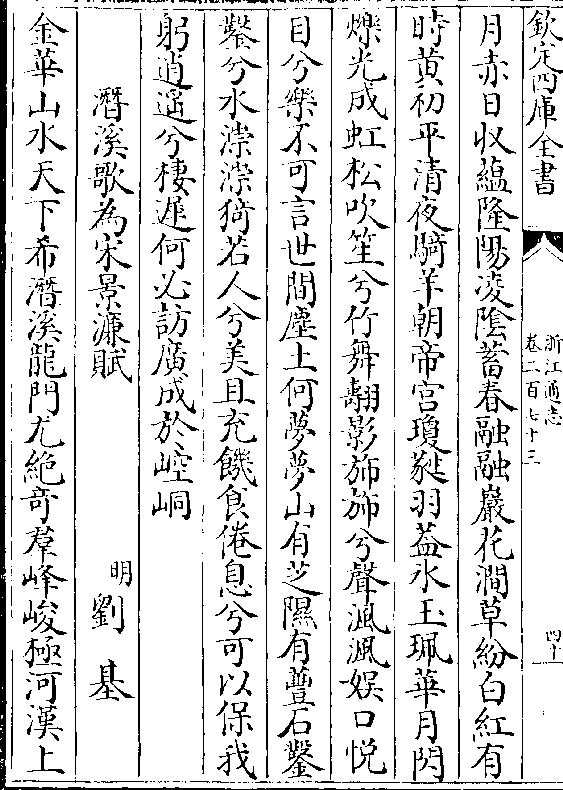 欽定四庫全書
浙江通志
卷二百七十三
四十一
月赤日收蘊隆陽凌陰蓄春融融巖花澗草紛白紅有
時黃初平清夜騎羊朝帝宮瓊蕤羽葢氷玉珮華月閃
爍光成虹松吹笙兮竹舞翻影斾斾兮聲渢渢娱口悦
目兮樂不可言世間塵土何夢夢山有芝隰有蘴石鑿
鑿兮水漴漴猗若人兮美且充饑食倦息兮可以保我
躬逍遥兮棲遲何必訪廣成於崆峒
濳溪歌為宋景濂賦
明劉基
金華山水天下希濳溪龍門尤絶奇羣峰峻極河漢上